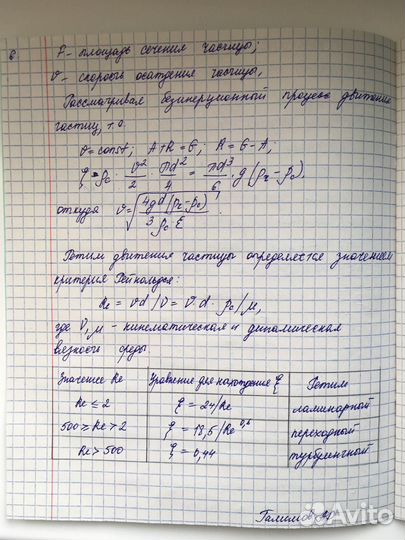 6
F - площадь сечения частицы;
υ - скорость осаждения частицы,
Рассматривая безинерционный процесс движения
частиц, т.о.
υ = const; A+R = G; R = G - A;
ξ · ρc · υ²/2 · πd²/4 = πd³/6 · g (ρr - ρc),
откуда υ = √(4gd(ρr - ρc) / 3ρc · ξ)
Режим движения частицы определяется значением
критерия Рейнольдса:
Re = υd/ν = υ · d · ρc/μ,
где ν, μ - кинематическая и динамическая
вязкость среды.
Значение Re Уравнение для нахождения ξ Режим
Re ≤ 2 ξ = 24/Re ламинарный
500 ≥ Re > 2 ξ = 18,5/Re⁰·⁶ переходный
Re > 500 ξ = 0,44 турбулентный
Avito